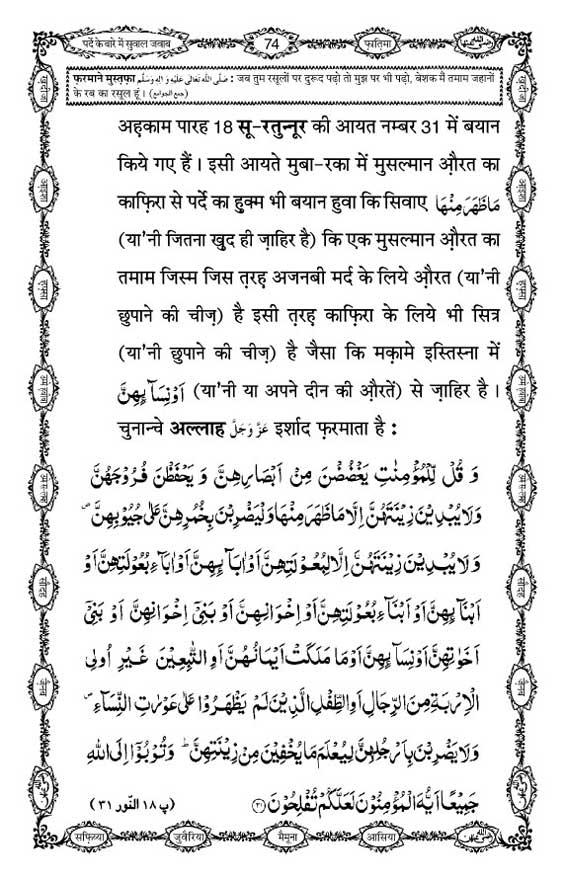 पर्दे के बारे में सुवाल जवाब
74
फ़ातिमा
फ़रमाने मुस्त़फ़ा صَلَّى اللّٰهُ تَعَالٰى عَلَيْهِ وَاٰلِهٖ وَسَلَّم : जब तुम रसूलों पर दुरूद पढ़ो तो मुझ पर भी पढ़ो, बेशक मैं तमाम जहानों
के रब का रसूल हूं । (جمع الجوامع)
अह़काम पारह 18 सू-रतुन्नूर की आयत नम्बर 31 में बयान
किये गए हैं । इसी आयते मुबा-रका में मुसल्मान औ़रत का
काफ़िरा से पर्दे का ह़ुक्म भी बयान हुवा कि सिवाए مَا ظَهَرَ مِنْهَا
(या'नी जितना ख़ुद ही ज़ाहिर है) कि एक मुसल्मान औ़रत का
तमाम जिस्म जिस त़रह़ अजनबी मर्द के लिये औ़रत (या'नी
छुपाने की चीज़) है इसी त़रह़ काफ़िरा के लिये भी सित्र
(या'नी छुपाने की चीज़) है जैसा कि मक़ामे इस्तिस्ना में
اَوْ نِسَآىٕهِنَّ (या'नी या अपने दीन की औ़रतें) से ज़ाहिर है ।
चुनान्चे अल्लाह عَزَّوَجَلَّ इर्शाद फ़रमाता है :
وَ قُلْ لِّلْمُؤْمِنٰتِ يَغْضُضْنَ مِنْ اَبْصَارِهِنَّ وَ يَحْفَظْنَ فُرُوْجَهُنَّ
وَلَا يُبْدِيْنَ زِيْنَتَهُنَّ اِلَّا مَا ظَهَرَ مِنْهَا وَلْيَضْرِبْنَ بِخُمُرِهِنَّ عَلٰى جُيُوْبِهِنَّ ۪
وَلَا يُبْدِيْنَ زِيْنَتَهُنَّ اِلَّا لِبُعُوْلَتِهِنَّ اَوْ اٰبَآىٕهِنَّ اَوْ اٰبَآءِ بُعُوْلَتِهِنَّ اَوْ
اَبْنَآىٕهِنَّ اَوْ اَبْنَآءِ بُعُوْلَتِهِنَّ اَوْ اِخْوَانِهِنَّ اَوْ بَنِيْۤ اِخْوَانِهِنَّ اَوْ بَنِيْۤ
اَخَوٰتِهِنَّ اَوْ نِسَآىٕهِنَّ اَوْ مَا مَلَكَتْ اَيْمَانُهُنَّ اَوِ التّٰبِعِيْنَ غَيْرِ اُولِي
الْاِرْبَةِ مِنَ الرِّجَالِ اَوِ الطِّفْلِ الَّذِيْنَ لَمْ يَظْهَرُوْا عَلٰى عَوْرٰتِ النِّسَآءِ ۪
وَلَا يَضْرِبْنَ بِاَرْجُلِهِنَّ لِيُعْلَمَ مَا يُخْفِيْنَ مِنْ زِيْنَتِهِنَّ ؕ وَتُوْبُوْۤا اِلَى اللّٰهِ
جَمِيْعًا اَيُّهَ الْمُؤْمِنُوْنَ لَعَلَّكُمْ تُفْلِحُوْنَ ﴿۳۱﴾ (پ ۱۸ النّور ۳۱)
सफ़िय्या
जुवैरिया
मैमूना
आसिया